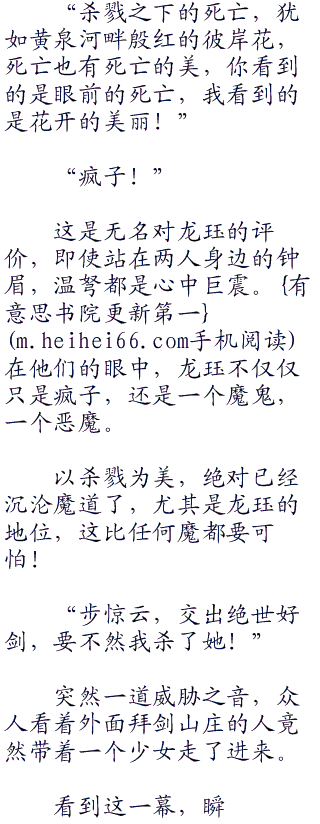 “杀戮之下的死亡，犹
如黄泉河畔殷红的彼岸花，
死亡也有死亡的美，你看到
的是眼前的死亡，我看到的
是花开的美丽！”
“疯子！”
这是无名对龙珏的评
价，即使站在两人身边的钟
眉，温弩都是心中巨震。{有
意思书院更新第一}
(m.heihei66.com手机阅读)
在他们的眼中，龙珏不仅仅
只是疯子，还是一个魔鬼，
一个恶魔。
以杀戮为美，绝对已经
沉沦魔道了，尤其是龙珏的
地位，这比任何魔都要可
怕！
“步惊云，交出绝世好
剑，要不然我杀了她！”
突然一道威胁之音，众
人看着外面拜剑山庄的人竟
然带着一个少女走了进来。
看到这一幕，瞬